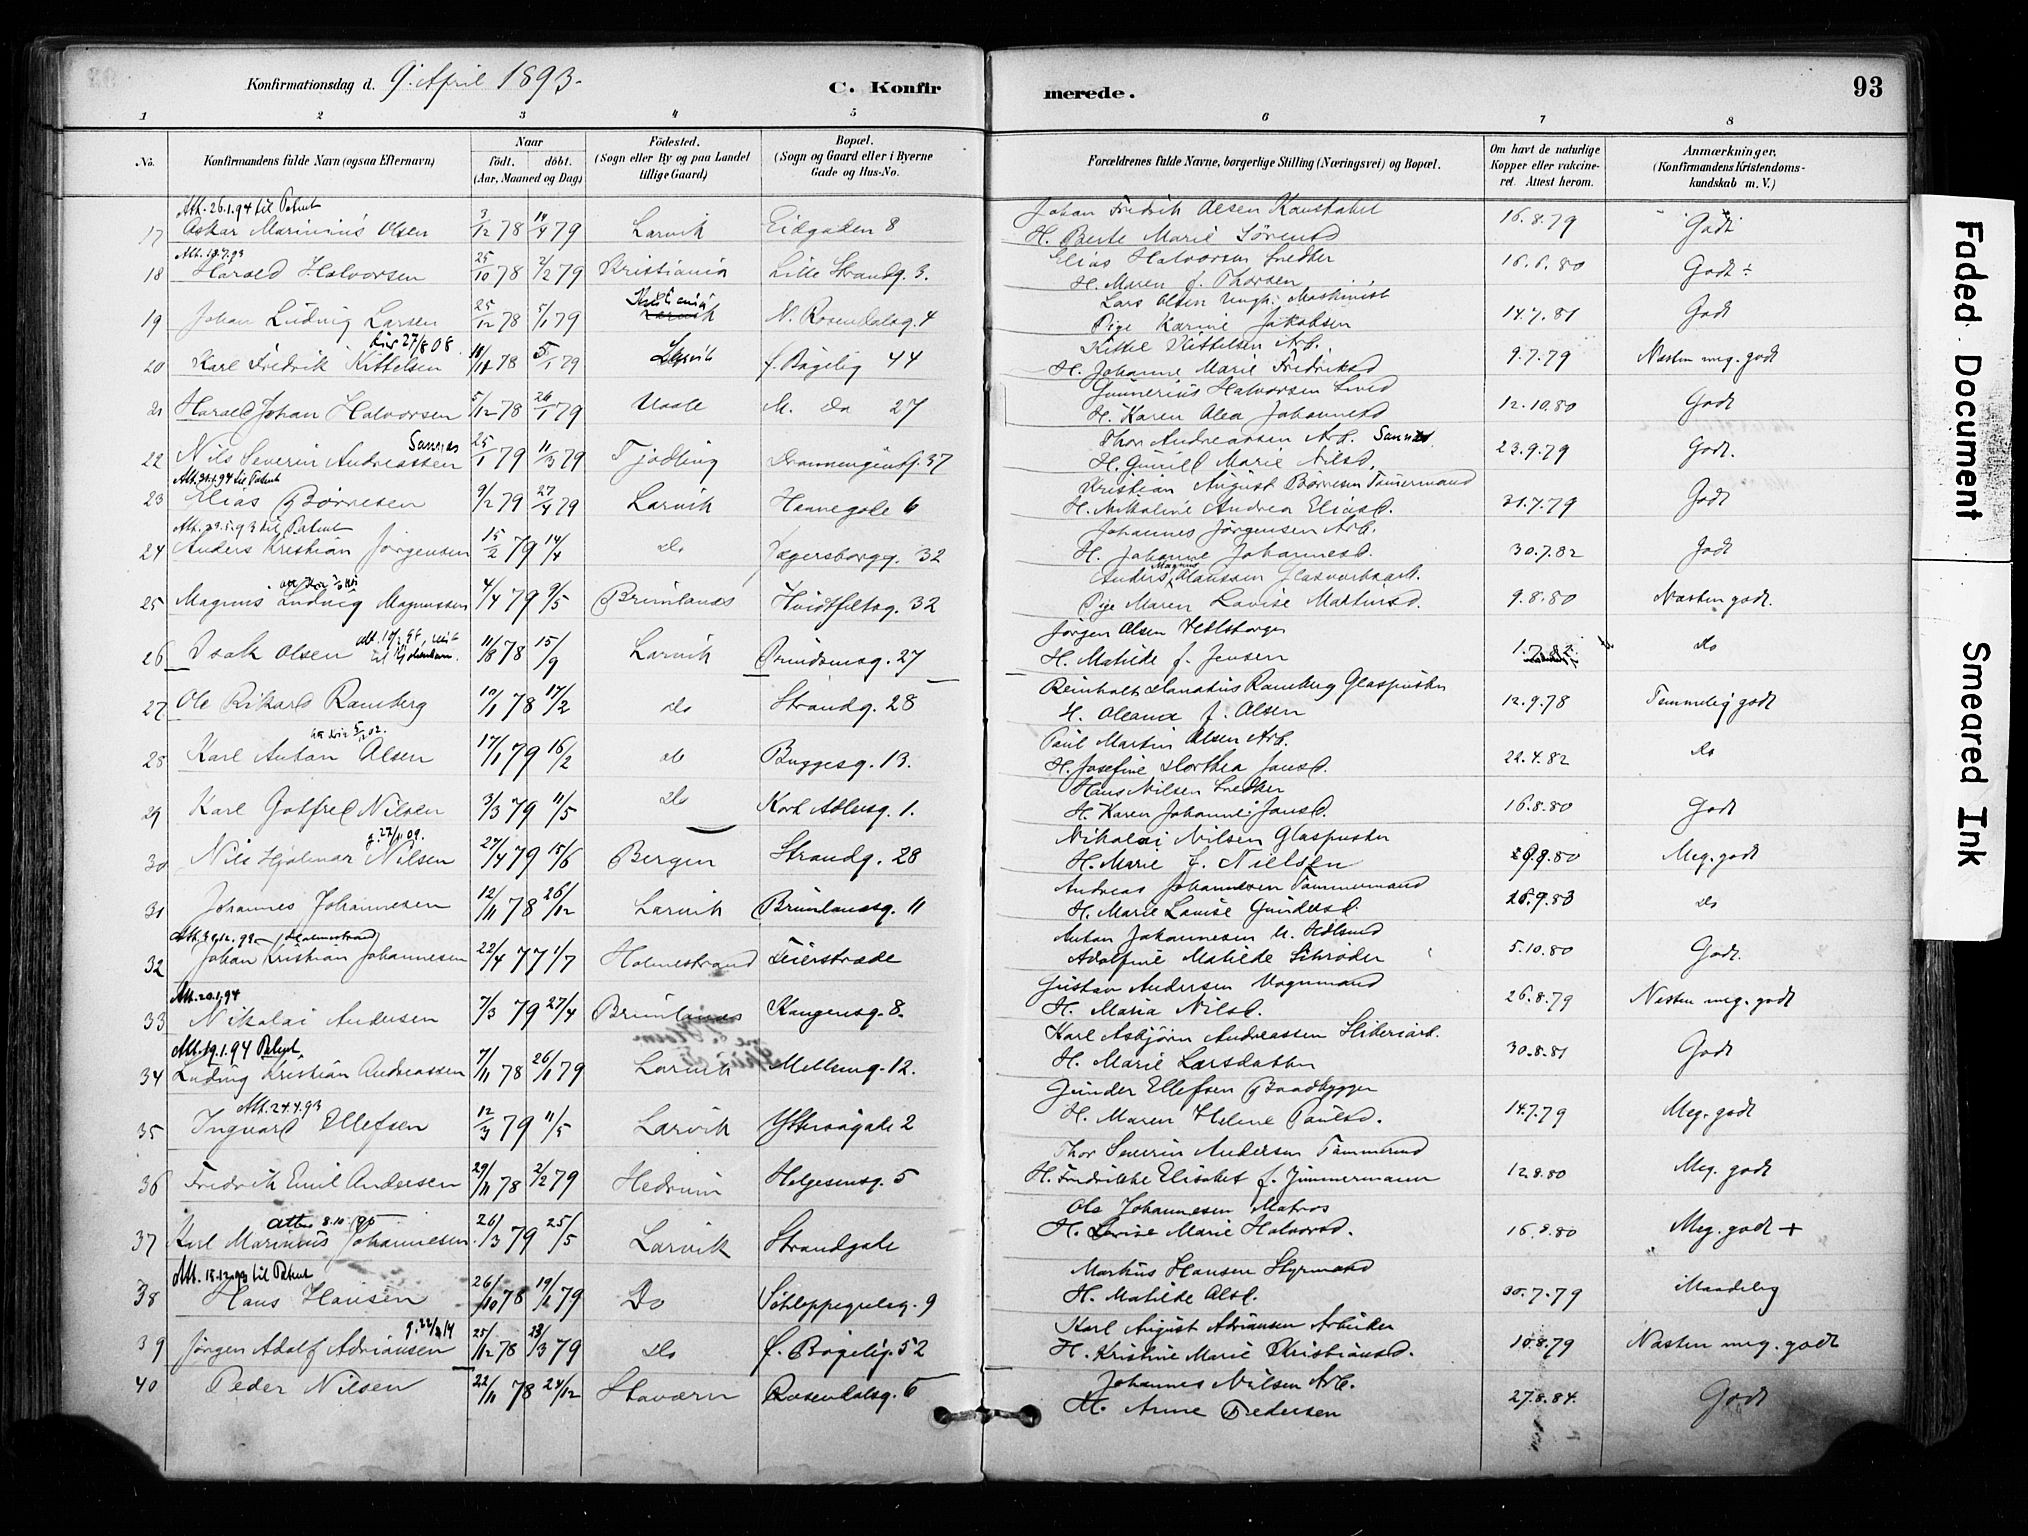 Konfirmationsdag d. 9. April 1893.
C. Konfirmerede.
93
1 2 3 4 5 6 7 8
No.
Konfirmandens fulde Navn (ogsaa Efternavn)
Naar
födt. döbt.
(Aar, Maaned og Dag)
Födested.
(Sogn eller By og paa Landet tillige Gaard)
Bopæl.
(Sogn og Gaard eller i Byerne Gade og Hus-No.
Forældrenes fulde Navne, borgerlige Stilling (Næringsvei) og Bopæl.
Om havt de naturlige Kopper eller vakcineret. Attest herom.
Anmærkninger,
(Konfirmandens Kristendomskundskab m. V.)
Att. 26.1.94 til Patent
17 Oskar Marinius Olsen 3/12 78 14/4 79 Larvik Eidgaden 8 Johan Fredrik Olsen Konstabel 16.8.79 Godt
H. Berte Marie Sörensd
Att. 19.7.93
18 Harald Halvorsen 25/10 78 2/2 79 Kristiania Lille Strandg. 3. Elias Halvorsen Snedker 16.6.80 Godt ÷
H. Maren f. Thorsen
19 Johan Ludvig Larsen 25/12 78 5/1 79 Kristiania N. Rosendalsg. 4 Lars Olsen Ungk. Maskinist 14.7.81 Godt
Pige Karine Jakobsen
27/8 08.
20 Karl Fredrik Kittelsen 78 5/1 79 Larvik f. Bögelig 44 Kittel Kittelsen Arb. 9.7.79 Næsten meg. godt
H. Johanne Marie Fredriksd
21 Harald Johan Halvorsen 5/12 78 26/1 79 M. Do 27 Gunnerius Halvorsen 12.10.80 Godt
H. Karen Alea Johannesd
Sannes
22 Nils Severin Andreassen 25/1 79 11/3 79 Tjödling 37 Thor Andreassen Arb. Sannes 23.9.79 Godt.
H. Gunild Marie Nilsd.
Att. 31.1.94 til Patent
23 Elias Börresen 9/2 79 27/4 79 Larvik Hannegade 6 Kristian August Börresen Tömmermand 31.7.79 Godt
H. Nikoline Andrea Eliasd.
Att. 29.5.93 til Patent
24 Anders Kristian Jörgensen 15/2 79 14/4 Do Jegersborgg. 32 Johannes Jörgensen Arb. 30.7.82 Godt
H. Johanne Johannesd.
25 Magnus Ludvig Magnussen 4/4 79 9/5 Brunlanes Hvidtfeltsg. 32 Anders Magnus Olaussen Glasværksarb. 9.8.80 Næsten godt.
Pige Maren Lovise Martinsd.
26 Isak Olsen 11/8 78 15/9 Larvik 27 Jörgen Olsen Do
H. Matilde f. Jensen
27 Ole Rikard Ramberg 10/1 78 17/2 Do Strandg. 28 Reinholt Donatus Ramberg Glaspuster 12.9.78 Temmelig godt
H. Oleana f. Olsen
28 Karl Anton Olsen 17/1 79 16/2 do Buggesg. 13. Paul Martin Olsen Arb. 22.4.82 Do
H. Josefine Dorthea Jansd.
29 Karl Gotfred Nilsen 3/3 79 11/5 Do Kort Adlersg. 1. Hans Nilsen Snedker 16.8.80 Godt
H. Karen Johanne Jansd.
g. 27/11 09.
30 Nils Hjalmar Nilsen 27/4 79 15/6 Bergen Strandg. 28 Nikolai Nilsen Glaspuster 80 Meg. godt
H. Marie f. Nielsen
31 Johannes Johannesen 12/11 78 26/12 Larvik Brunlanesg. 11 Andreas Johannesen Tömmermand 18.9.83 Do
H. Marie Lovise Gundersd.
(Holmestrand)
32 Johan Kristian Johannesen 22/4 77 1/7 Holmestrand Feierstræde Anton Johannesen 5.10.80 Godt.
Adolfine Matilde Schröder
Att. 20.1.94
33 Nikolai Andersen 7/3 79 27/4 Brunlanes Kongensg. 8. Gustav Andersen Vognmand 26.8.79 Næsten meg. godt
H. Maria Nilsd.
Att. 19.1.94 Patent.
34 Ludvig Kristian Andreassen 7/11 78 26/1 79 Larvik Mellemg. 12. Karl Asbjörn Andreassen 30.8.81 Godt
H. Marie Larsdatter
Att. 24.4.93
35 Ingvard Ellefsen 12/3 79 11/5 Larvik Yttersögade 2 Gunder Ellefsen Baadbygger 14.7.79 Meg. godt
H. Maren Helene Paulsd.
36 Fredrik Emil Andersen 29/11 78 2/2 79 Hedrum Helgesensg. 5 Thor Severin Andersen Tömmermd 12.8.80 Meg. godt
H. Fredrikke Elisabet f. Zimmermann
37 Karl Marinius Johannesen 26/3 79 25/5 Larvik Strandgade Ole Johannesen Matros 16.8.80 Meg. godt +
H. Lovise Marie Halvorsd.
Att. 18.12.93 til Patent
38 Hans Hansen 26/10 78 19/2 79 Do Schleppegrelsg. 9 Markus Hansen Styrmand 30.7.79 Maadelig
H. Matilde Olsd.
39 Jörgen Adolf Adriansen 25/12 78 23/3 79 Do f. Bögelig. 52 Karl August Adriansen Arbeider 10.8.79 Næsten meg. godt
H. Kristine Marie Kristiansd.
40 Peder Nilsen 22/11 78 24/12 Stavern Rosendalsg. 6 Johannes Nilsen Arb. 27.8.84. Godt
H. Anne Pedersen
Faded Document
Smeared Ink